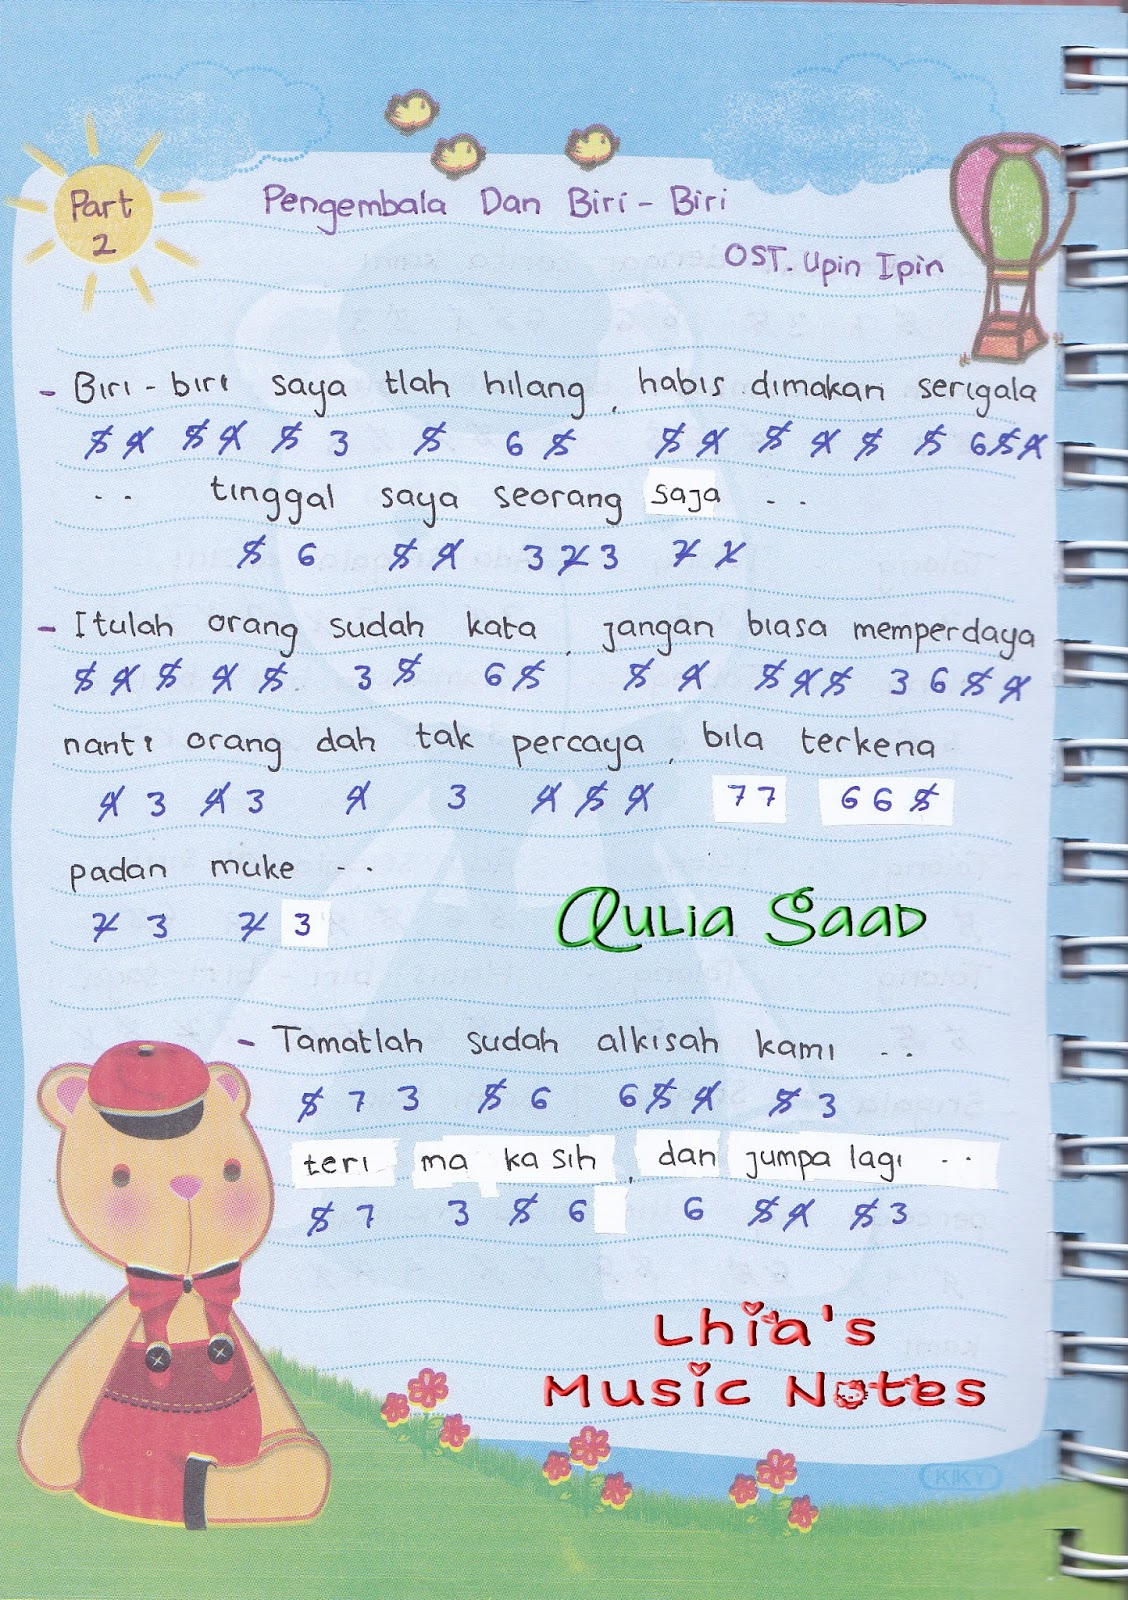 Part
2
Pengembala Dan Biri - Biri
OST. Upin Ipin
- Biri - biri saya tlah hilang, habis dimakan serigala
5̸ 4̸ 5̸ 4̸ 5̸ 3 5̸ 6 5̸ 5̸ 4̸ 5̸ 4̸ 5̸ 5̸ 6 5̸ 4̸
.. tinggal saya seorang saja ..
5̸ 6 5̸ 4̸ 3 7̸ 3 7̸ 1̸
- Itulah orang sudah kata, jangan biasa memperdaya
5̸ 4̸ 5̸ 4̸ 5̸ 3 5̸ 6 5̸ 5̸ 4̸ 5̸ 4̸ 5̸ 3 6 5̸ 4̸
nanti orang dah tak percaya, bila terkena
4̸ 3 4̸ 3 4̸ 3 4̸ 5̸ 4̸ 7 7 6 6 5̸
padan muke - ..
7̸ 3 7̸ 3
Aulia Saad
- Tamatlah sudah alkisah kami ..
5̸ 7 3 5̸ 6 6 5̸ 4̸ 5̸ 3
teri ma kasih, dan jumpa lagi ..
5̸ 7 3 5̸ 6 6 5̸ 4̸ 5̸ 3
Lhia's
Music Notes
KIKY